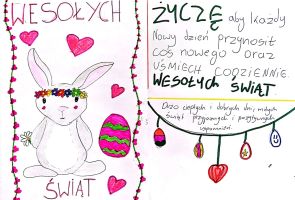 WESOŁYCH
ŚWIĄT
ŻYCZĘ aby każdy
Nowy dzień przynosił
coś nowego oraz
UŚMIECH CODZIENNIE.
WESOŁYCH ŚWIĄT
Dużo ciepłych i dobrych dni, miłych
Świąt przyjaznych i pozytywnych
wspomnień.